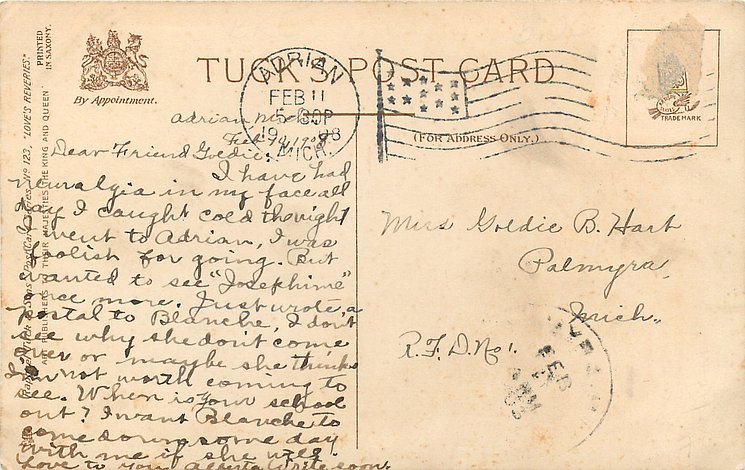 TUCK'S POST CARD
By Appointment.
(FOR ADDRESS ONLY.)
TRADE MARK
ADRIAN
FEB 11
5-30P
1908
MICH.
PRINTED
IN SAXONY.
"LOVE'S REVERIES."
Nº 123,
ART PUBLISHERS TO THEIR MAJESTIES THE KING AND QUEEN
Adrian Mich
Feb 1908
Dear Friend Goldie:
I have had
neuralgia in my face all
day I caught cold the night
I went to Adrian, I was
foolish for going. But
wanted to see "Josephine"
once more. Just wrote a
postal to Blanche, I don't
see why she don't come
over or maybe she thinks
I'm not worth coming to
see. When is your school
out? I want Blanche to
come down some day
with me if she will.
Love to you Alberta Write soon.
Miss Goldie B. Hart
Palmyra,
Mich.,
R.F.D. No 1.
FEB